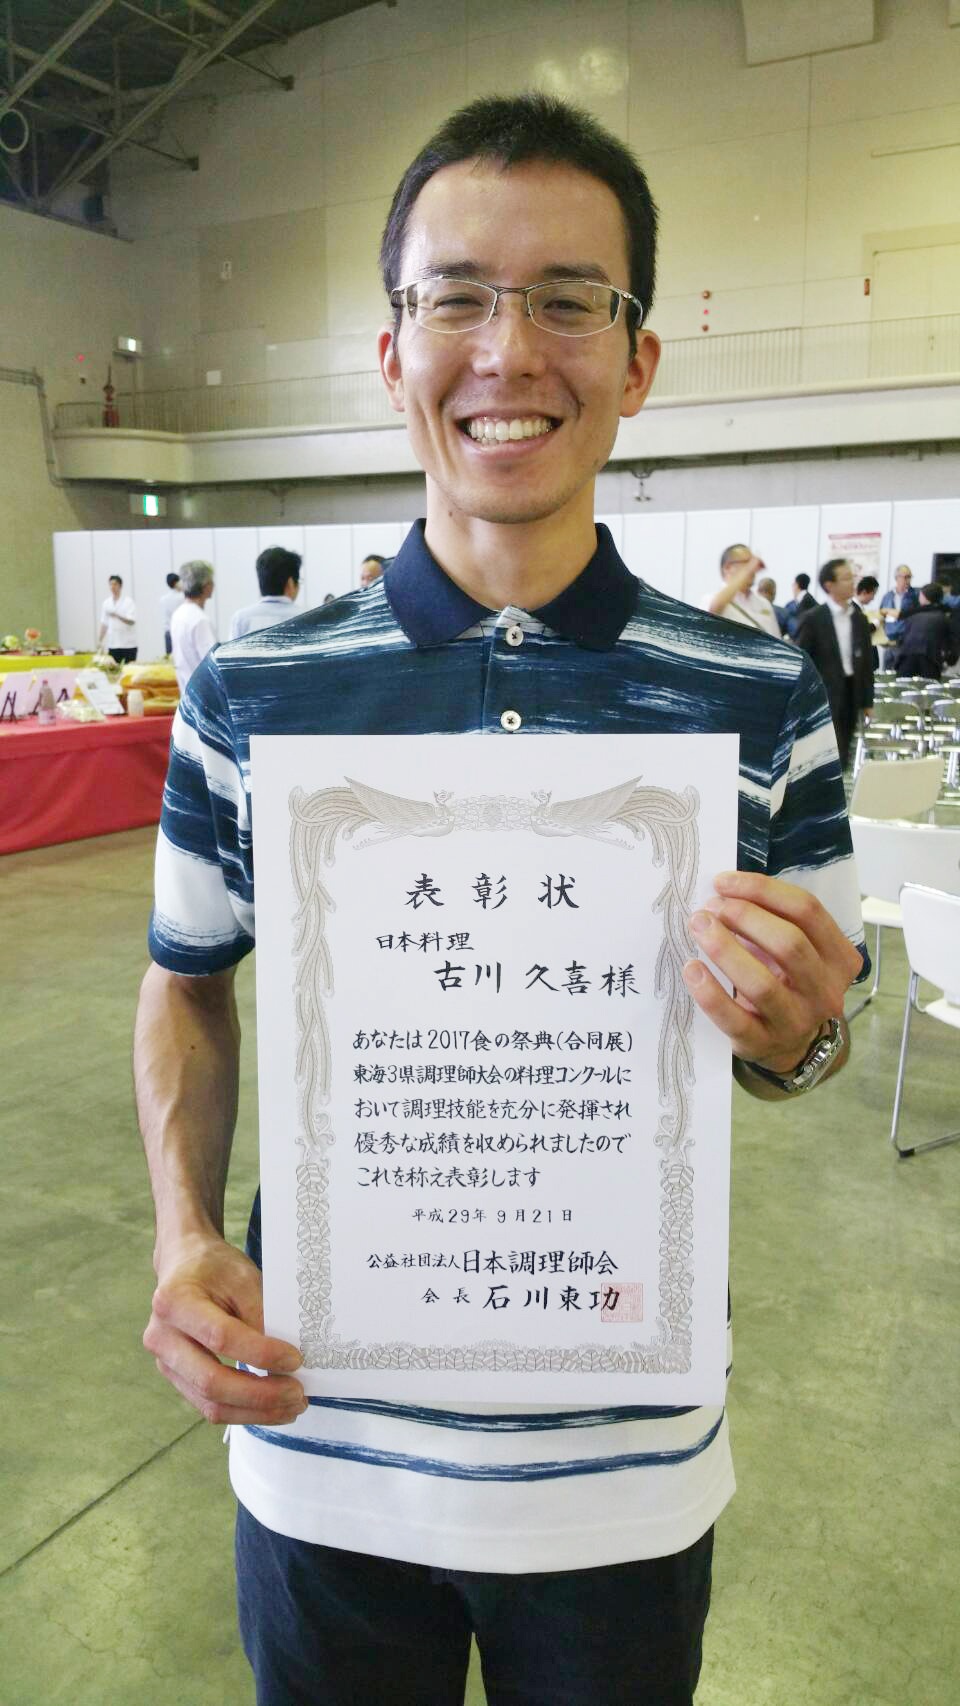 表彰状
日本料理
古川 久喜様
あなたは2017食の祭典(合同展)
東海3県調理師大会の料理コンクールに
おいて調理技能を充分に発揮され
優秀な成績を収められましたので
これを称え表彰します
平成29年 9月21日
公益社団法人日本調理師会
会長 石川東功